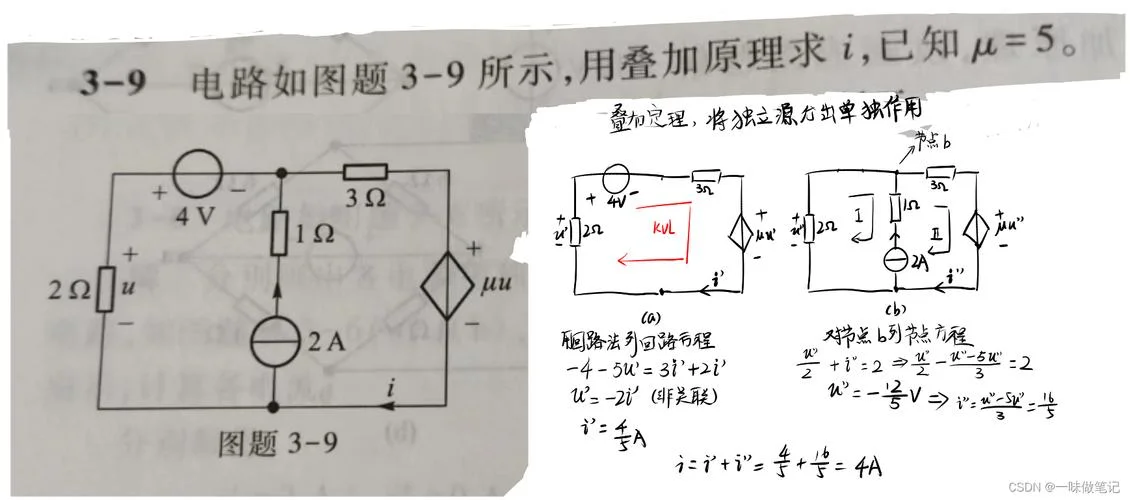 3-9 电路如图题 3-9 所示,用叠加原理求 i,已知 μ=5。
+ 4 V -
3 Ω
1 Ω
2 Ω
+ u -
+ μu -
2 A
i
图题 3-9
叠加定理,将独立源允出单独作用
+ 4V -
3Ω
+ u' - 2Ω
KVL
+ μu' -
i'
(a)
节点b
3Ω
1Ω
I
II
+ u'' - 2Ω
+ μu'' -
2A
i''
(b)
用回路法列回路方程
-4-5u'=3i'+2i'
u'=-2i' (非关联)
i'=4/5A
对节点b列节点方程
u''/2+i''=2 ⇒ u''/2-u''-5u''/3=2
u''=-12/5V ⇒ i''=u''-5u''/3=16/5
i=i'+i''=4/5+16/5=4A
CSDN @一味做笔记